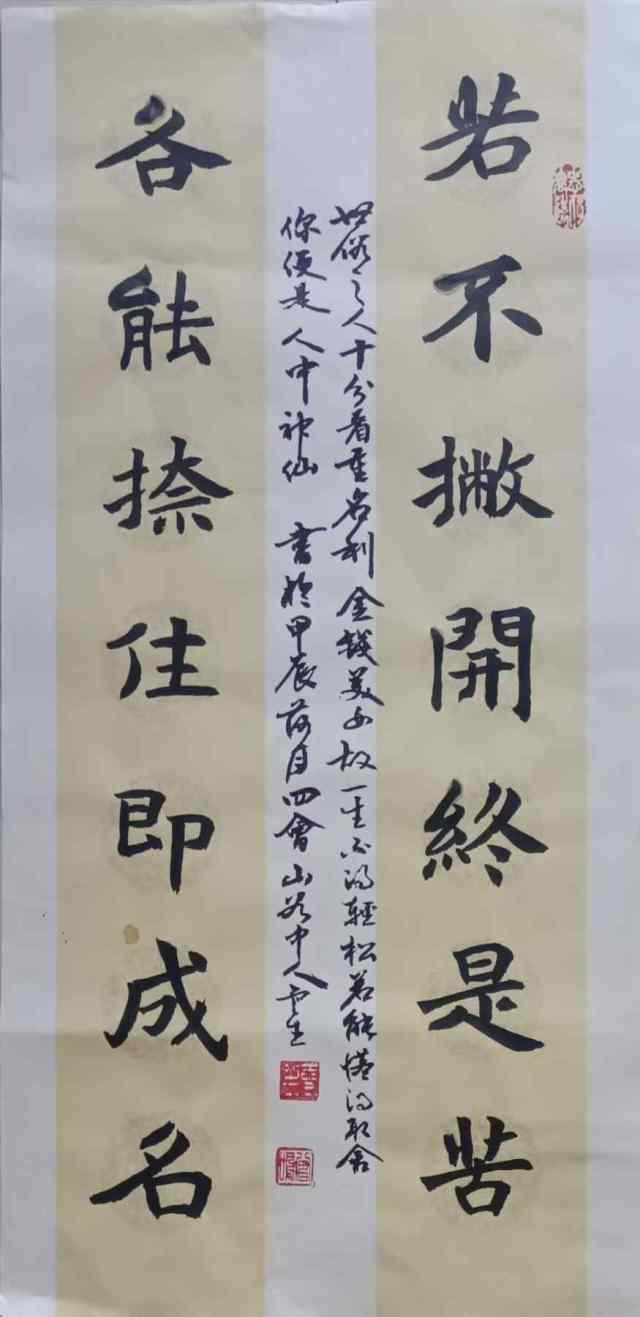 若不撇開終是苦
各能捺住即成名
世俗之人十分看重名利金錢美女故一生不得輕松若能悟得取舍
你便是人中神仙 書於甲辰荷月四會山谷中人雲生